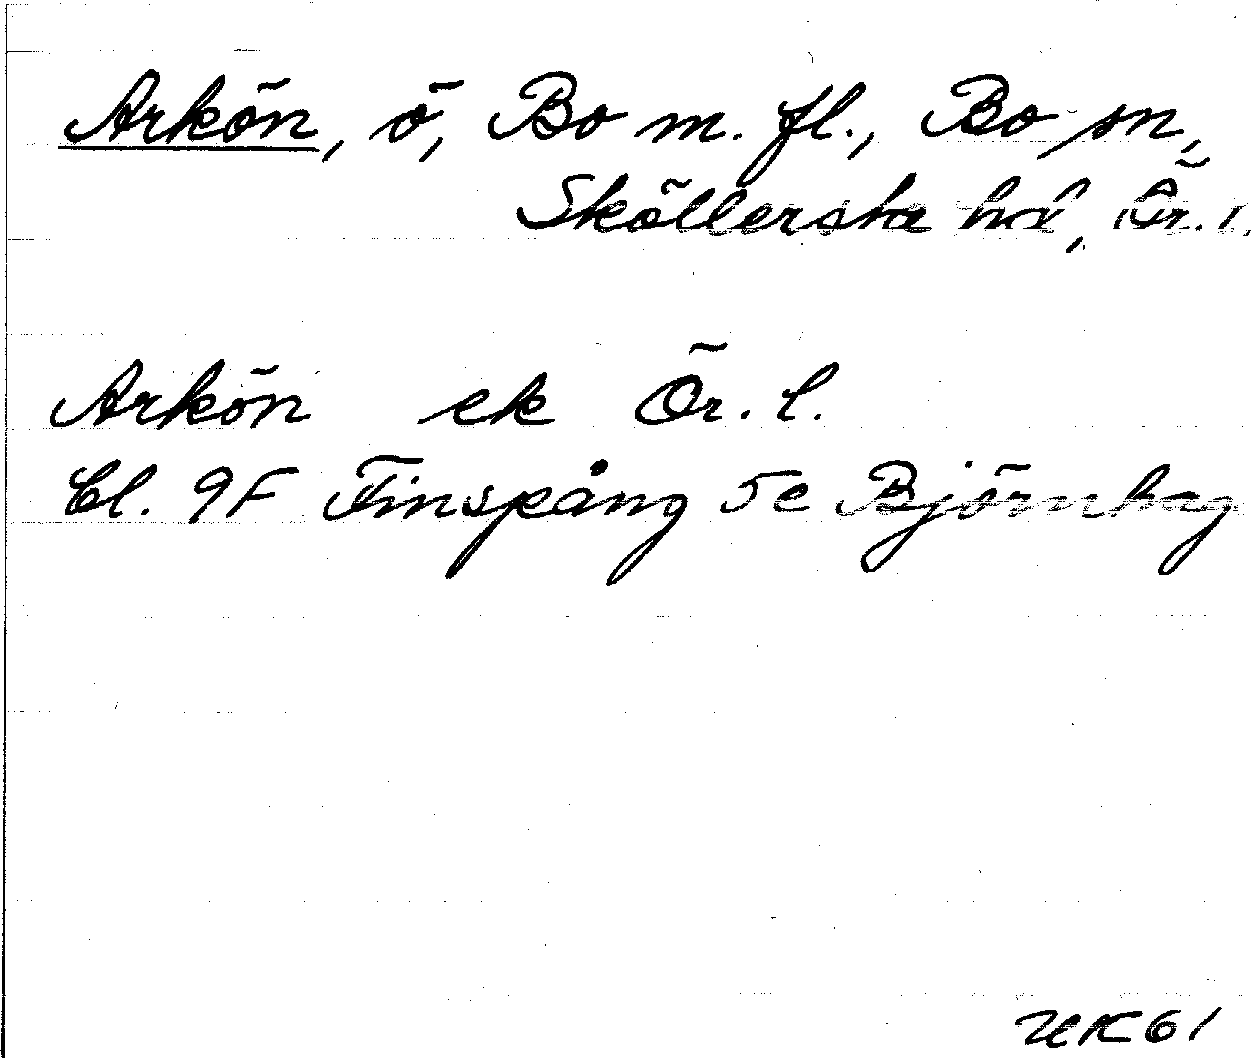 Arkön, ö, Bo m. fl., Bo sn,
Sköllersta hd, Ör. l.
Arkön ek Ör. l.
Bl. 9F Finspång 5e Björnhag
UK 61